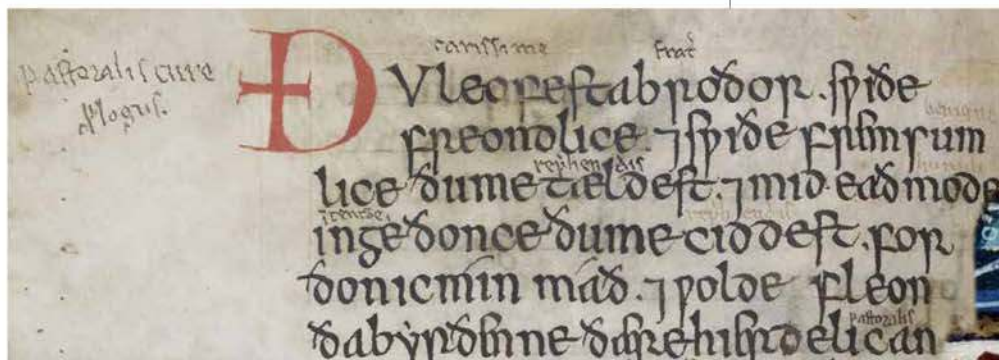 pastoralis cure
plogus.
carissime frat̄
ÐV leofesta broðor . sƿiðe
benigne
freondlice . ⁊ sƿiðe fremsum
rep̄hendis
lice ðu me tældest . ⁊ mid . eaðmode
ingeðonce ðu me ciddest . for
ðon ic min máð . ⁊ ƿolde fleon
pastoralis
ða byrðenne ðære hirdelican